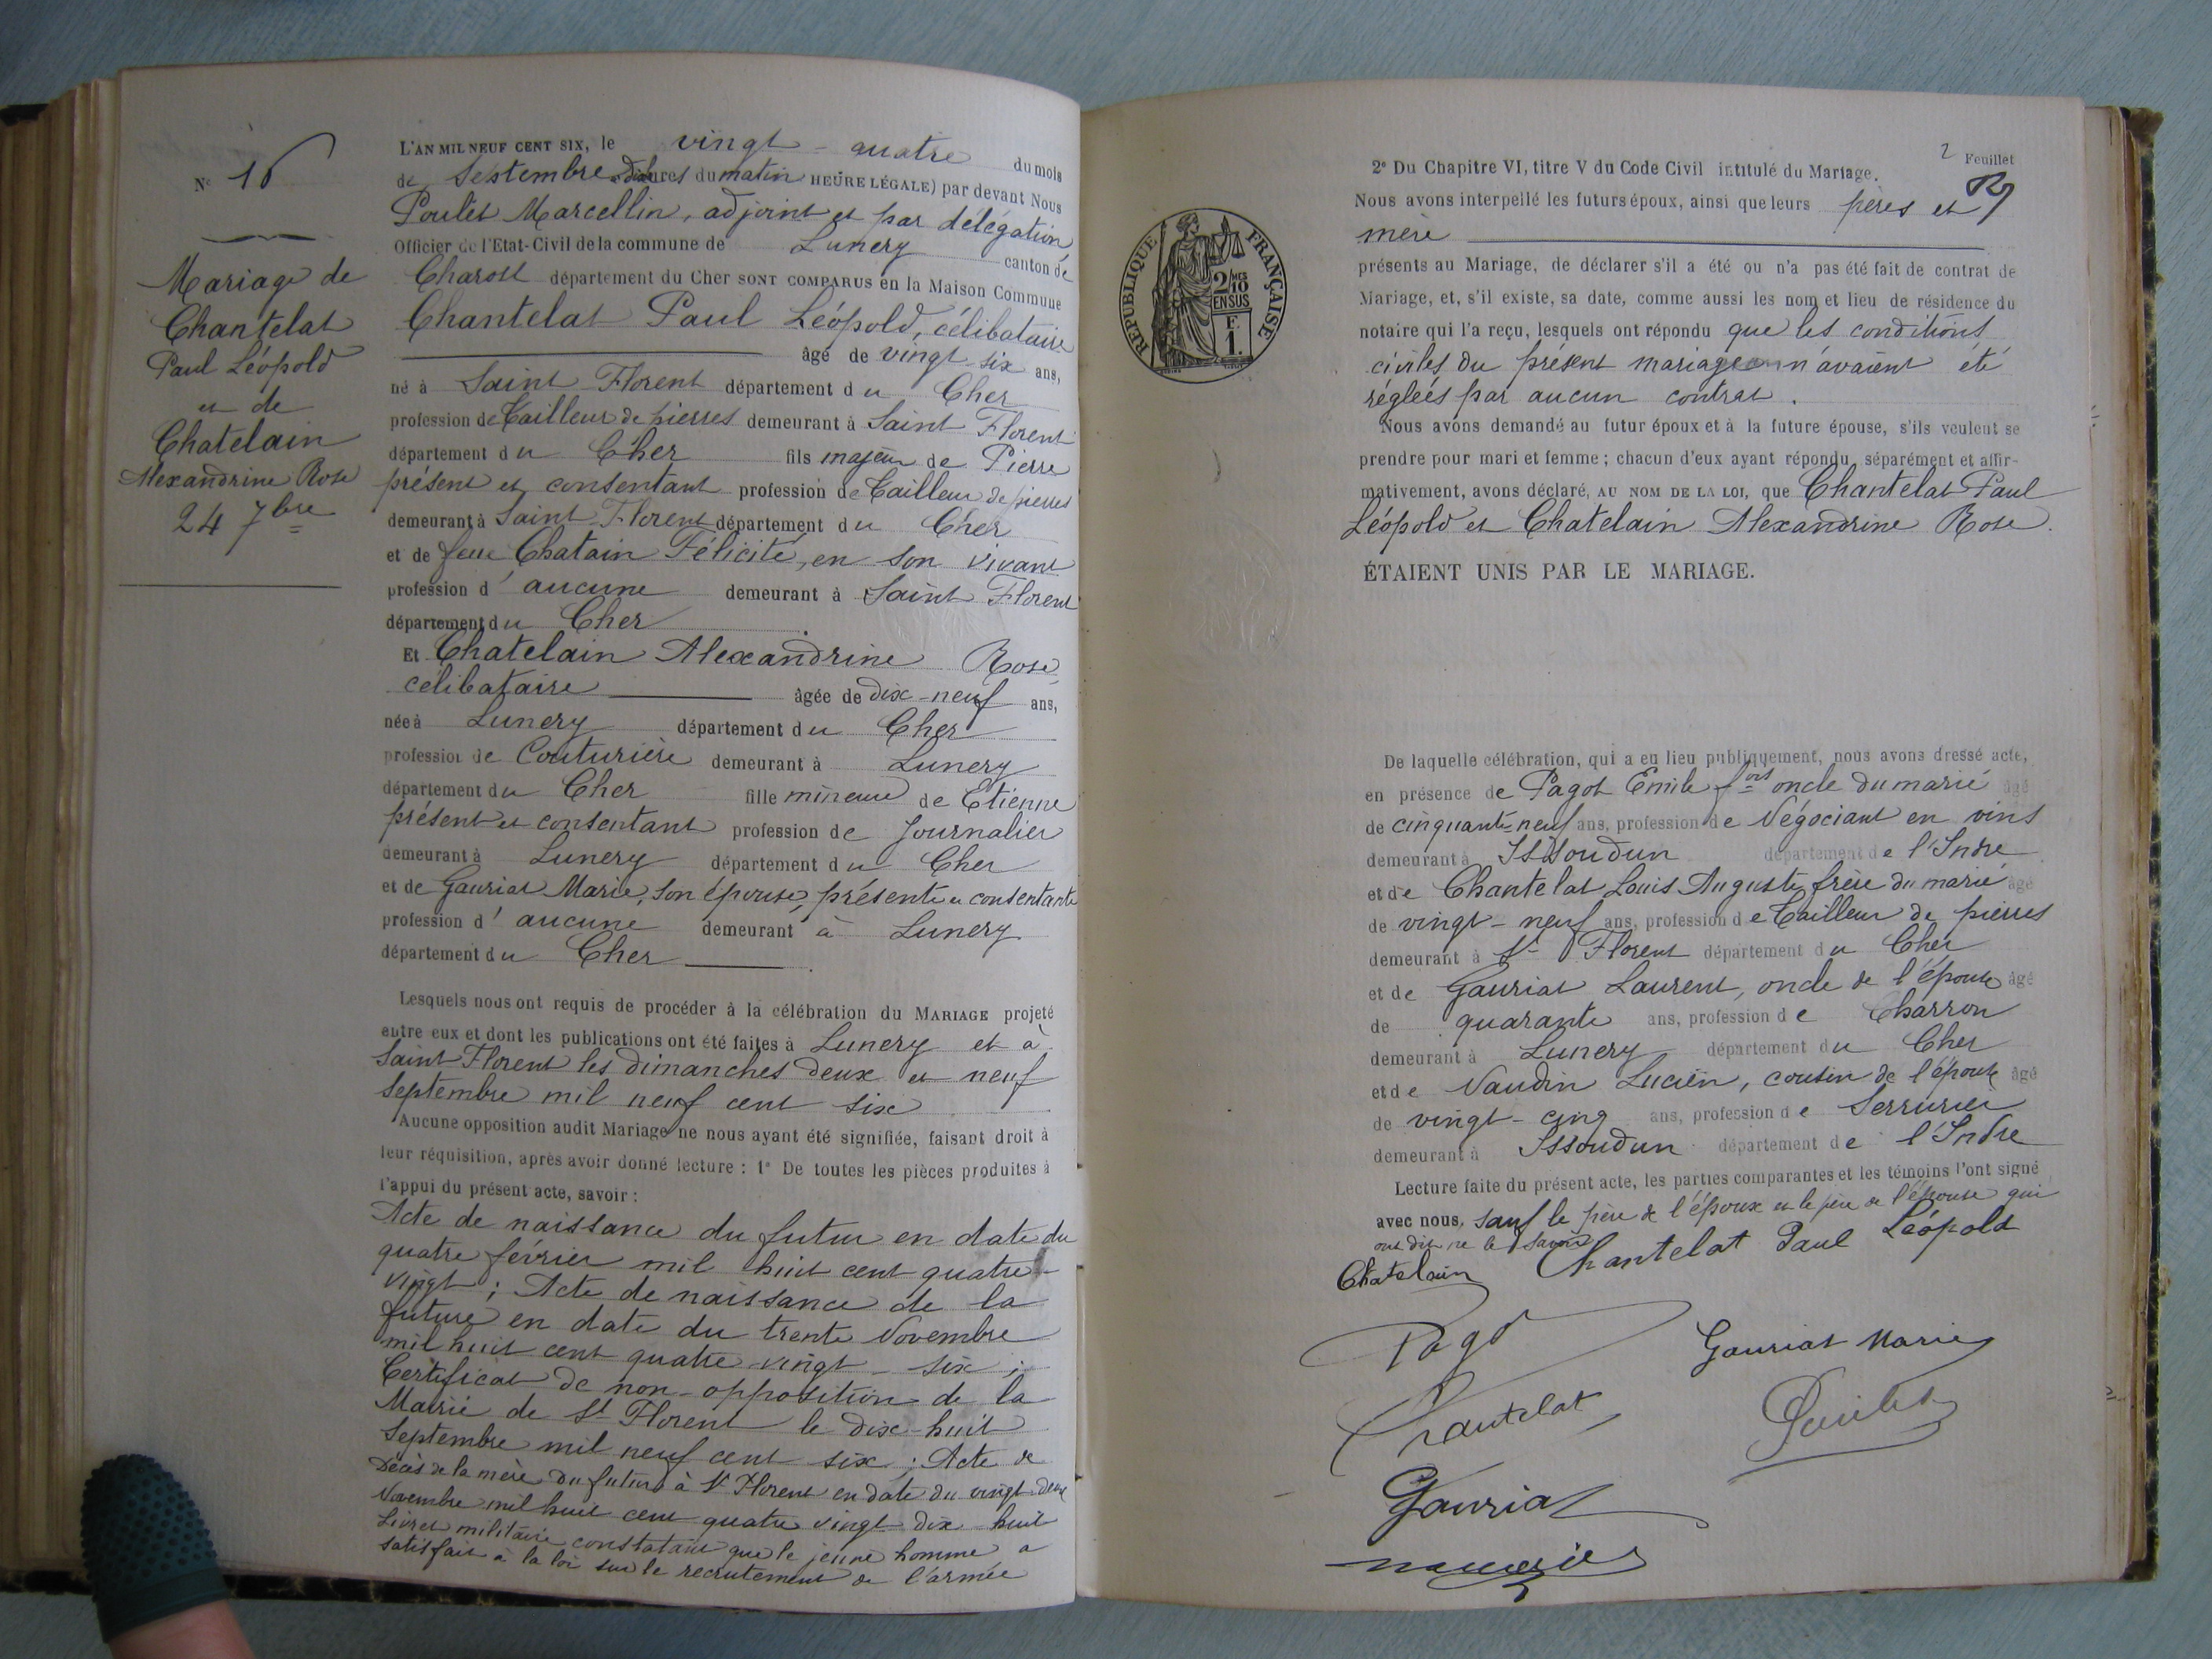 N° 16
Mariage de
Chantelat
Paul Léopold
et de
Chatelain
Alexandrine Rose
24 7bre
L'AN MIL NEUF CENT SIX, le vingt-quatre du mois
de Septembre dix heures du matin HEURE LÉGALE) par devant Nous
Poulet Marcellin, adjoint et par délégation,
Officier de l'Etat-Civil de la commune de Lunery canton de
Charost département du Cher SONT COMPARUS en la Maison Commune
Chantelat Paul Léopold, célibataire
âgé de vingt-six ans,
né à Saint Florent département du Cher
profession de Tailleur de pierres demeurant à Saint Florent
département du Cher fils majeur de Pierre
présent et consentant profession de Tailleur de pierres
demeurant à Saint Florent département du Cher
et de feue Chatain Félicité, en son vivant
profession d'aucune demeurant à Saint Florent
département du Cher
Et Chatelain Alexandrine Rose,
célibataire âgée de dix-neuf ans,
née à Lunery département du Cher
profession de Couturière demeurant à Lunery
département du Cher fille mineure de Etienne
présent et consentant profession de Journalier
demeurant à Lunery département du Cher
et de Gauriat Marie, son épouse, présente et consentante
profession d'aucune demeurant à Lunery
département du Cher
Lesquels nous ont requis de procéder à la célébration du MARIAGE projeté
entre eux et dont les publications ont été faites à Lunery et à
Saint Florent les dimanches deux et neuf
Septembre mil neuf cent six
Aucune opposition audit Mariage ne nous ayant été signifiée, faisant droit à
leur réquisition, après avoir donné lecture : 1° De toutes les pièces produites à
l'appui du présent acte, savoir :
Acte de naissance du futur en date du
quatre février mil huit cent quatre-
vingt ; Acte de naissance de la
future en date du trente Novembre
mil huit cent quatre-vingt-six ;
Certificat de non-opposition de la
Mairie de St Florent le dix-huit
Septembre mil neuf cent six ; Acte de
Décès de la mère du futur à St Florent en date du vingt-deux
Novembre mil huit cent quatre vingt dix-huit
Livret militaire constatant que le jeune homme a
satisfait à la loi sur le recrutement de l'armée
RÉPUBLIQUE FRANÇAISE
2/10 MES
EN SUS
F.
1.
2 Feuillet
2° Du Chapitre VI, titre V du Code Civil intitulé du Mariage.
Nous avons interpellé les futurs époux, ainsi que leurs pères et
mère
présents au Mariage, de déclarer s'il a été ou n'a pas été fait de contrat de
Mariage, et, s'il existe, sa date, comme aussi les nom et lieu de résidence du
notaire qui l'a reçu, lesquels ont répondu que les conditions
civiles du présent mariage n'avaient été
réglées par aucun contrat.
Nous avons demandé au futur époux et à la future épouse, s'ils veulent se
prendre pour mari et femme ; chacun d'eux ayant répondu séparément et affir-
mativement, avons déclaré, AU NOM DE LA LOI, que Chantelat Paul
Léopold et Chatelain Alexandrine Rose.
ÉTAIENT UNIS PAR LE MARIAGE.
De laquelle célébration, qui a eu lieu publiquement, nous avons dressé acte,
en présence de Pagot Emile fois oncle du marié âgé
de cinquante-neuf ans, profession de Négociant en vins
demeurant à Issoudun département de l'Indre
et de Chantelat Louis Auguste, frère du marié âgé
de vingt-neuf ans, profession de Tailleur de pierres
demeurant à St Florent département du Cher
et de Gauriat Laurent, oncle de l'épouse âgé
de quarante ans, profession de Charron
demeurant à Lunery département du Cher
et de Naudin Lucien, cousin de l'épouse âgé
de vingt-cinq ans, profession de Serrurier
demeurant à Issoudun département de l'Indre
Lecture faite du présent acte, les parties comparantes et les témoins l'ont signé
avec nous, sauf le père de l'époux et le père de l'épouse qui
ont dit ne le savoir
Chatelain Chantelat Paul Léopold
Pagot Gauriat Marie
Chantelat Poulet
Gauriat